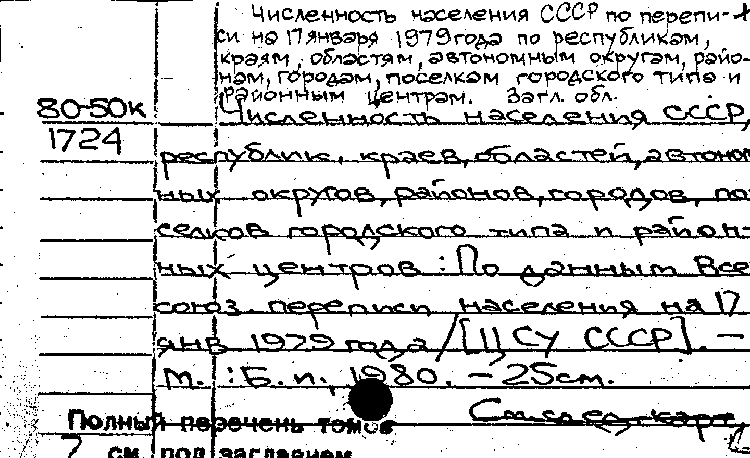 Численность населения СССР по перепи-
си на 17 января 1979 года по республикам,
краям, областям, автономным округам, райо-
нам, городам, поселкам городского типа и
районным центрам. Загл. обл.
80-50к
Численность населения СССР,
1724
республик, краев, областей, автоном
ных округов, районов, городов, по
селков городского типа и район-
ных центров : По данным Все
союз. переписи населения на 17
янв 1979 года / [ЦСУ СССР]. —
М. : Б. и., 1980. — 25см.
См. след. карт.
Полный перечень томов
см. под заглавием